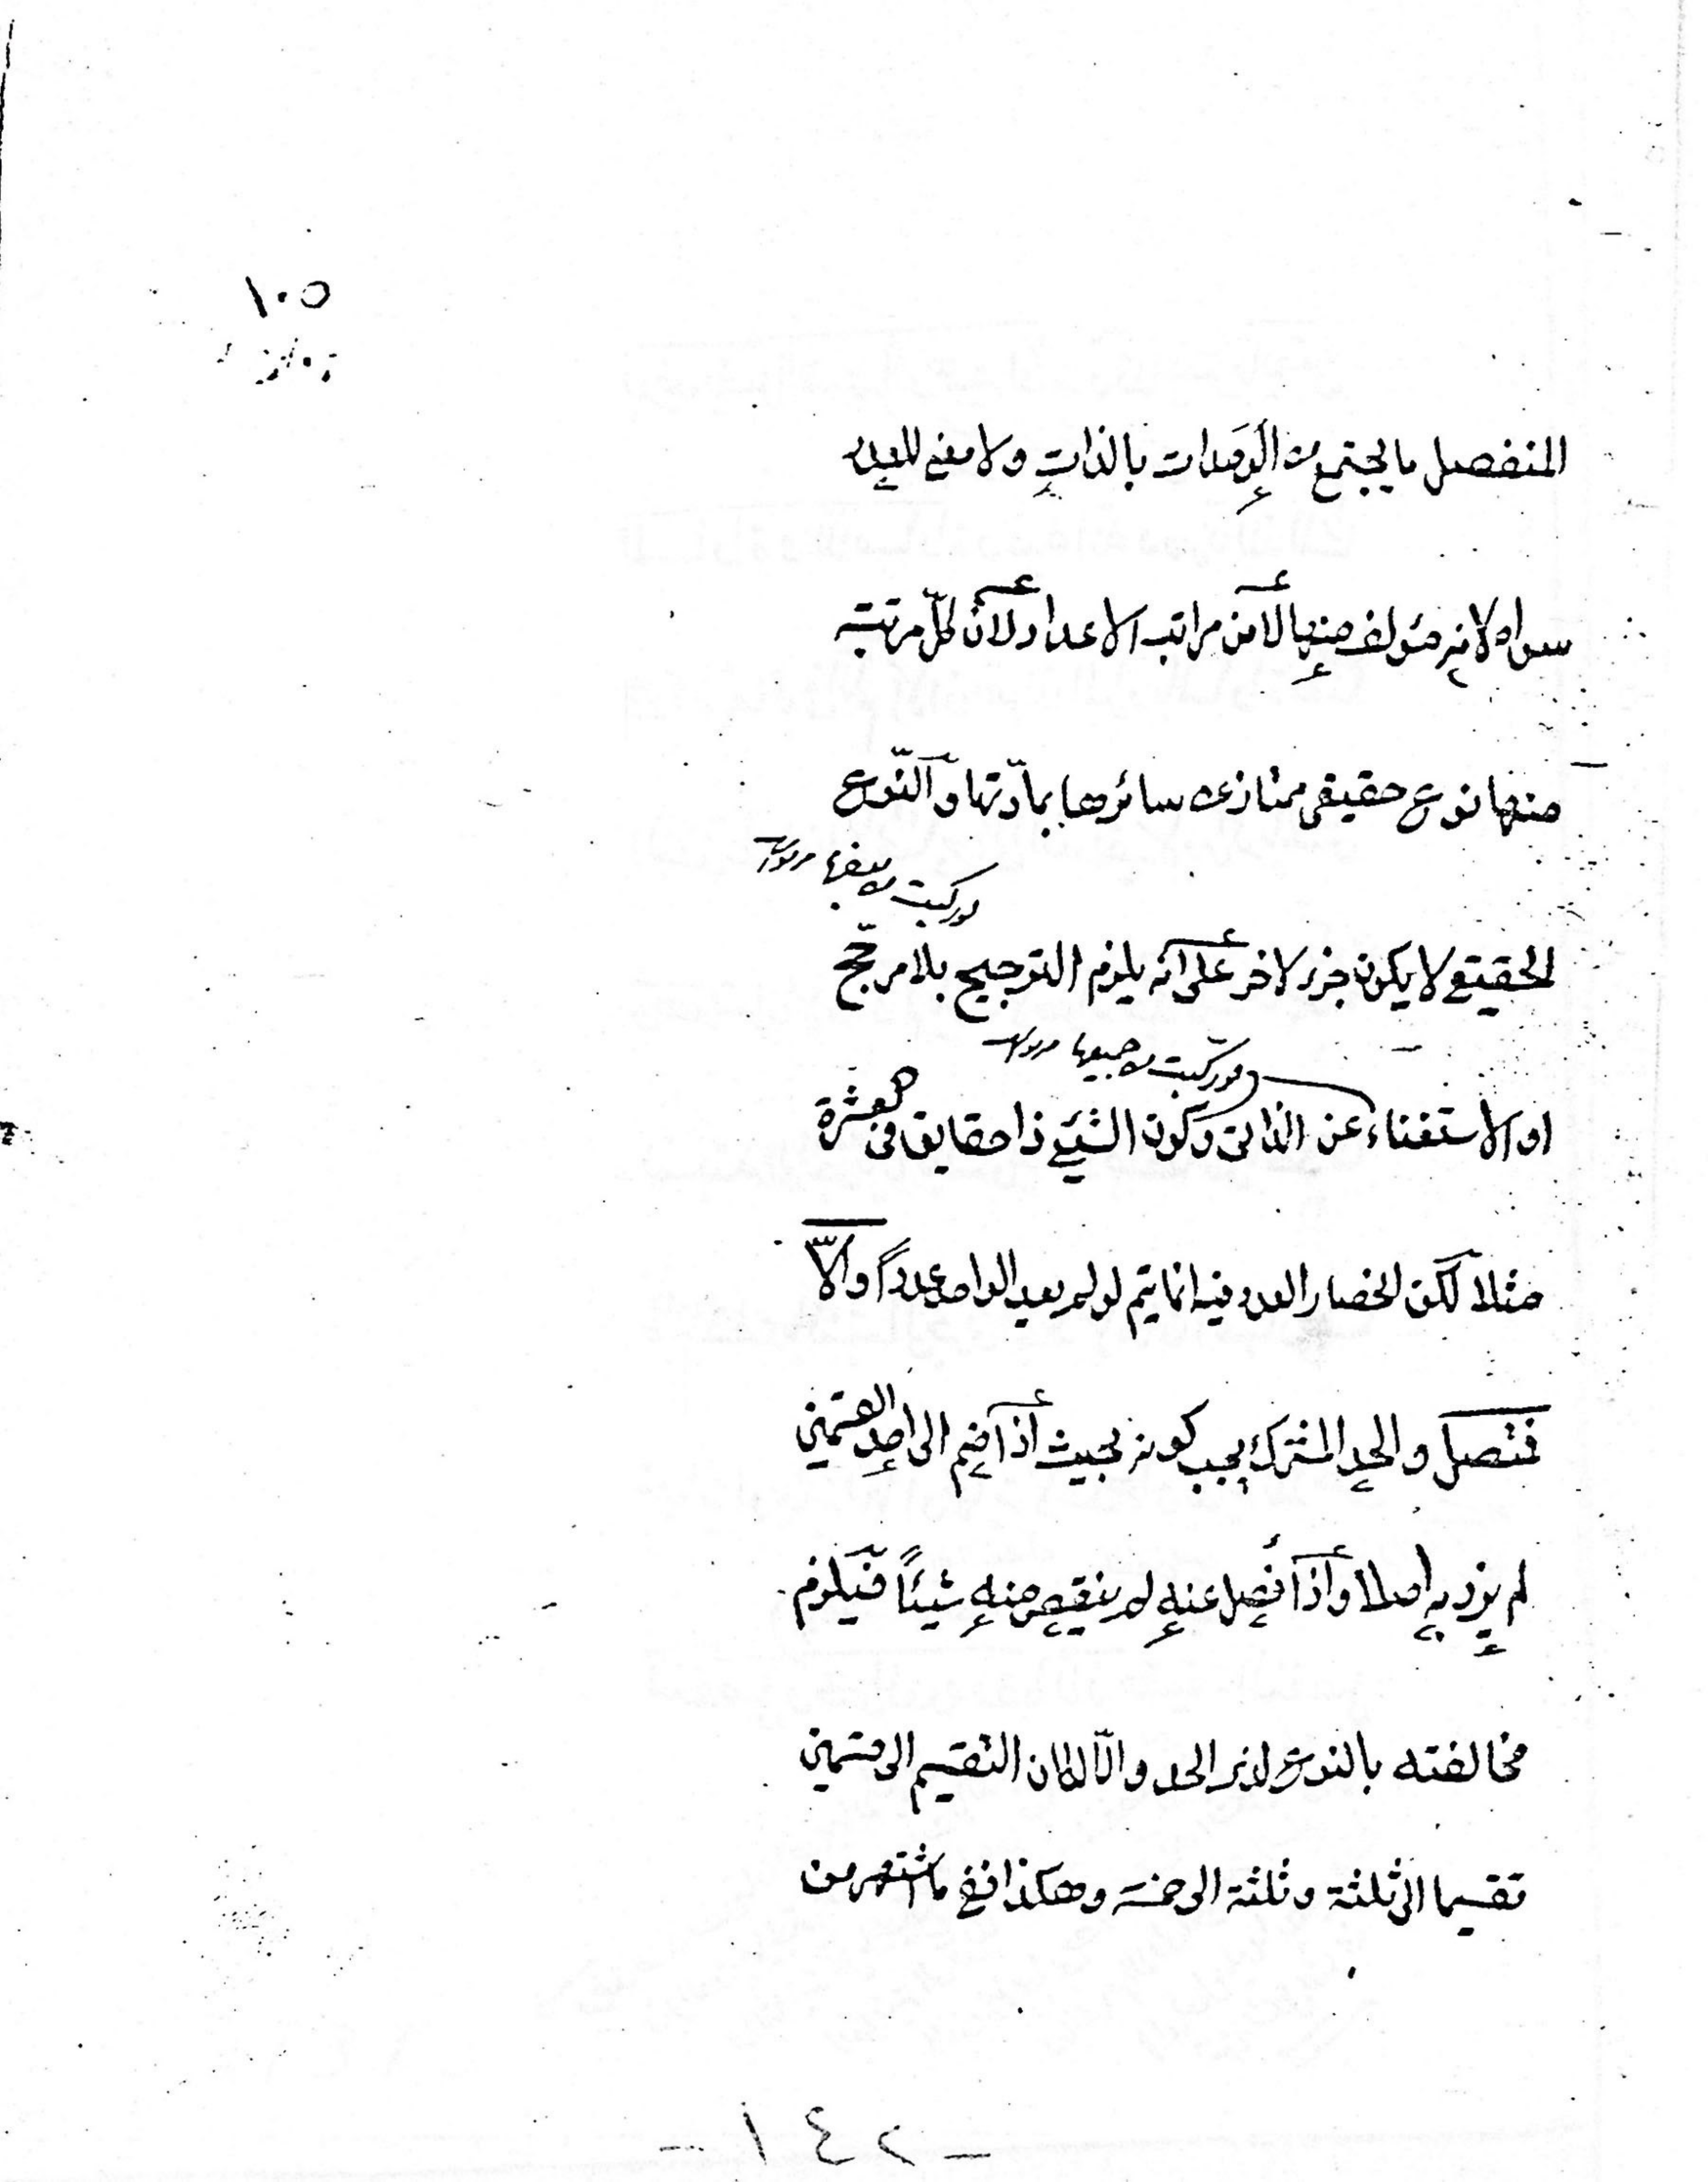 ١٠٥
المنفصل ما يجتمع من الوحدات بالذات ولا معنى للعدد
سواه لانه مؤلف منها لا من مراتب الاعداد لانّ لكلّ مرتبة
منها نوع حقيقى ممتاز عن سائرها بمادّتها والنّوع
لو ركبت من بعضها
الحقيقى لا يكون جزء لاخر على انه يلزم الترجيح بلا مرجّح
لو تركبت من جميعها
او الاستغناء عن الذاتى وكون الشيئ ذا حقايق فى العشرة
مثلا لكن انحصار العدد فيه انما يتم لو لم يعد الواحد عدداً والّا
فمتصل والحد المشترك يجب كونه بحيث اذا ضم الى احد القسمين
لم يزد به اصلا واذا فصل عنه لم ينقص منه شيئاً فيلزم
مخالفته بالنوع لذى الحد والّا لكان التقسيم الى قسمين
تقسيما الى ثلثة وثلثة الى خمسة وهكذا ففى ما اشتهر من
- ١٤٢ -